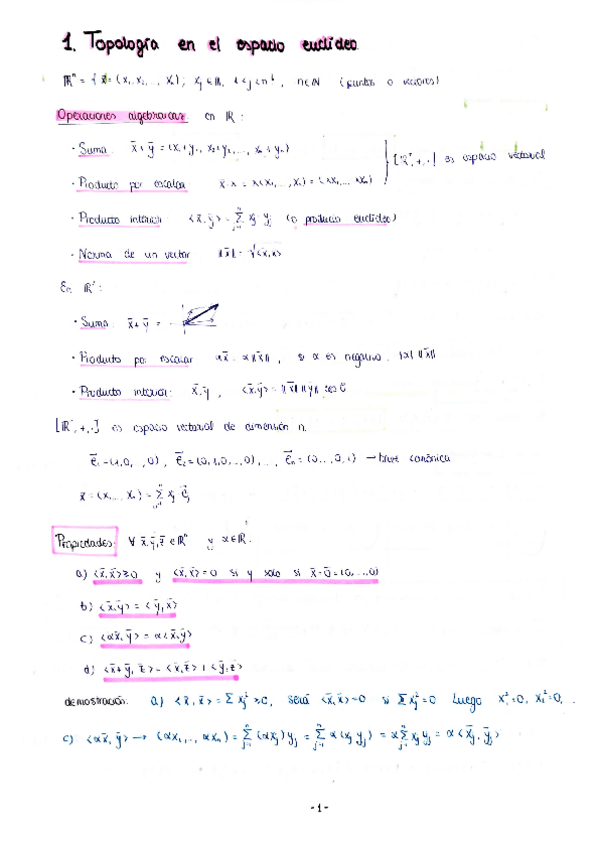 1. Topología en el espacio euclídeo
ℝⁿ = { x̄ = (x₁, x₂, ..., xₙ); xⱼ ∈ ℝ, 1 ≤ j ≤ n }, n ∈ ℕ (puntos o vectores)
Operaciones algebraicas en ℝ:
· Suma: x̄ + ȳ = (x₁+y₁, x₂+y₂, ..., xₙ+yₙ)
[ℝⁿ, +, ·] es espacio vectorial
· Producto por escalar
· Producto interior: <x̄, ȳ> = Σ xⱼ yⱼ (o producto euclídeo)
· Norma de un vector ||x̄|| = √<x̄, x̄>
En ℝ²:
· Suma: x̄ + ȳ =
· Producto por escalar , si α es negativo: |α| ||x̄||
· Producto interior: x̄·ȳ , <x̄, ȳ> = ||x̄|| ||ȳ|| cos
[ℝⁿ, +, ·] es espacio vectorial de dimensión n.
ē₁ = (1,0, ,0), ē₂ = (0,1,0,..,0), ..., ēₙ = (0,..,0,1) → base canónica
x̄ = (x₁,...,xₙ) = Σ xⱼ ēⱼ
Propiedades: ∀ x̄, ȳ, z̄ ∈ ℝⁿ y α ∈ ℝ:
a) <x̄, x̄> ≥ 0 y <x̄, x̄> = 0 si y solo si x̄ = 0̄ = (0,...,0)
b) <x̄, ȳ> = <ȳ, x̄>
c) <αx̄, ȳ> = α<x̄, ȳ>
d) <x̄+ȳ, z̄> = <x̄, z̄> + <ȳ, z̄>
demostración: a) <x̄, x̄> = Σ xⱼ² ≥ 0, será <x̄, x̄> = 0 si Σ xⱼ² = 0 Luego x₁² = 0, x₂² = 0, .
c) <αx̄, ȳ> → (αx₁, .., αxₙ) = Σ (αxⱼ) yⱼ = Σ α(xⱼ yⱼ) = α Σ xⱼ yⱼ = α <x̄ⱼ, ȳⱼ>
-1-